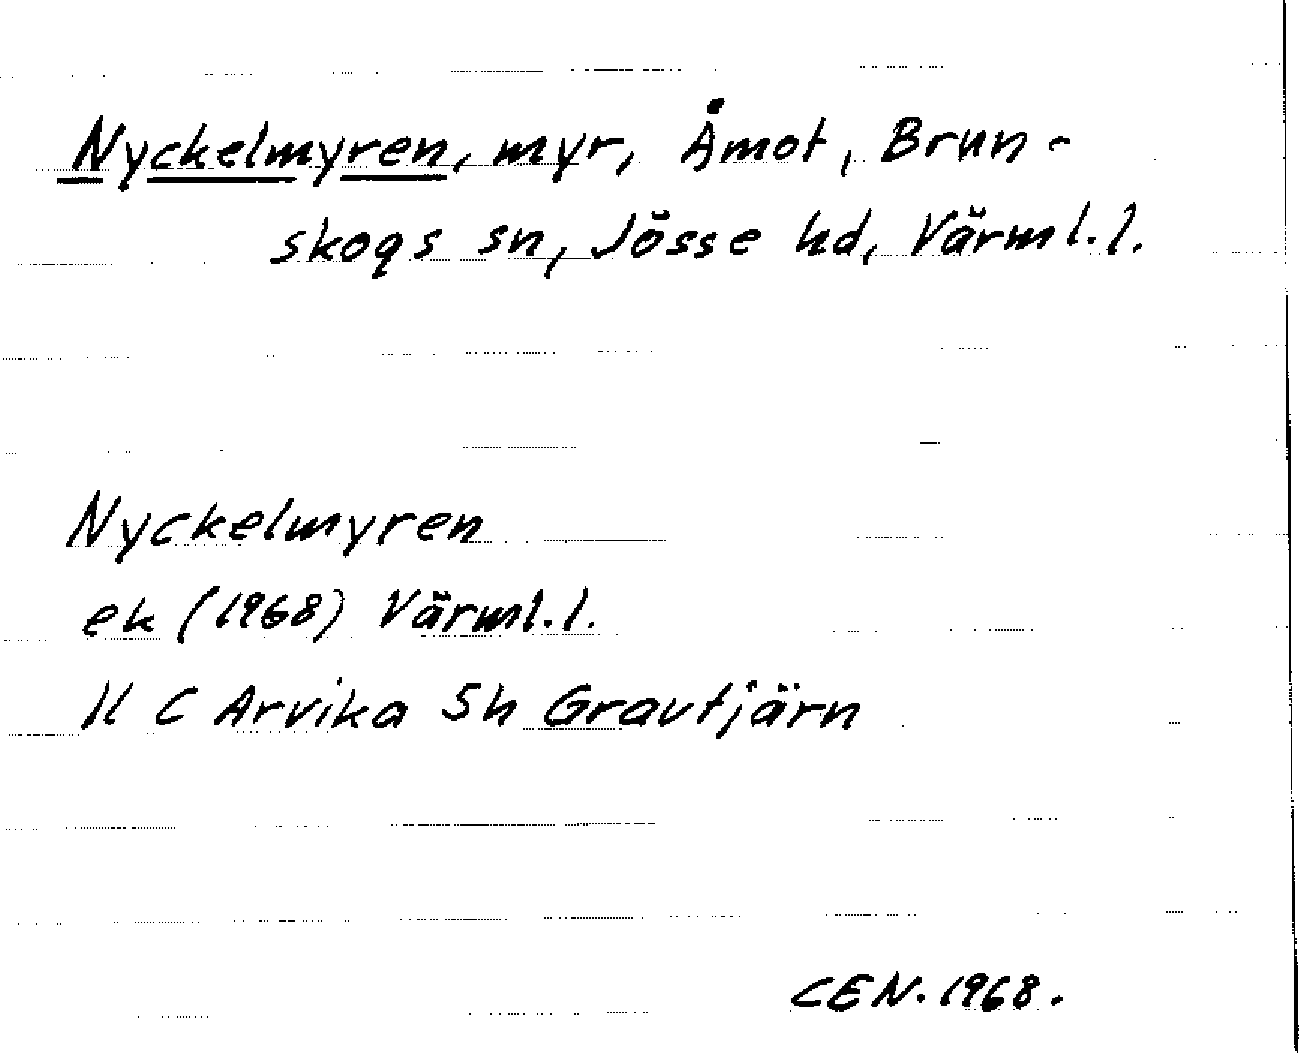 Nyckelmyren, myr, Åmot, Brun-
skogs sn, Jösse hd, Värml.l.
Nyckelmyren
ek (1968) Värml.l.
11 C Arvika 5h Gravtjärn
CEN. 1968.